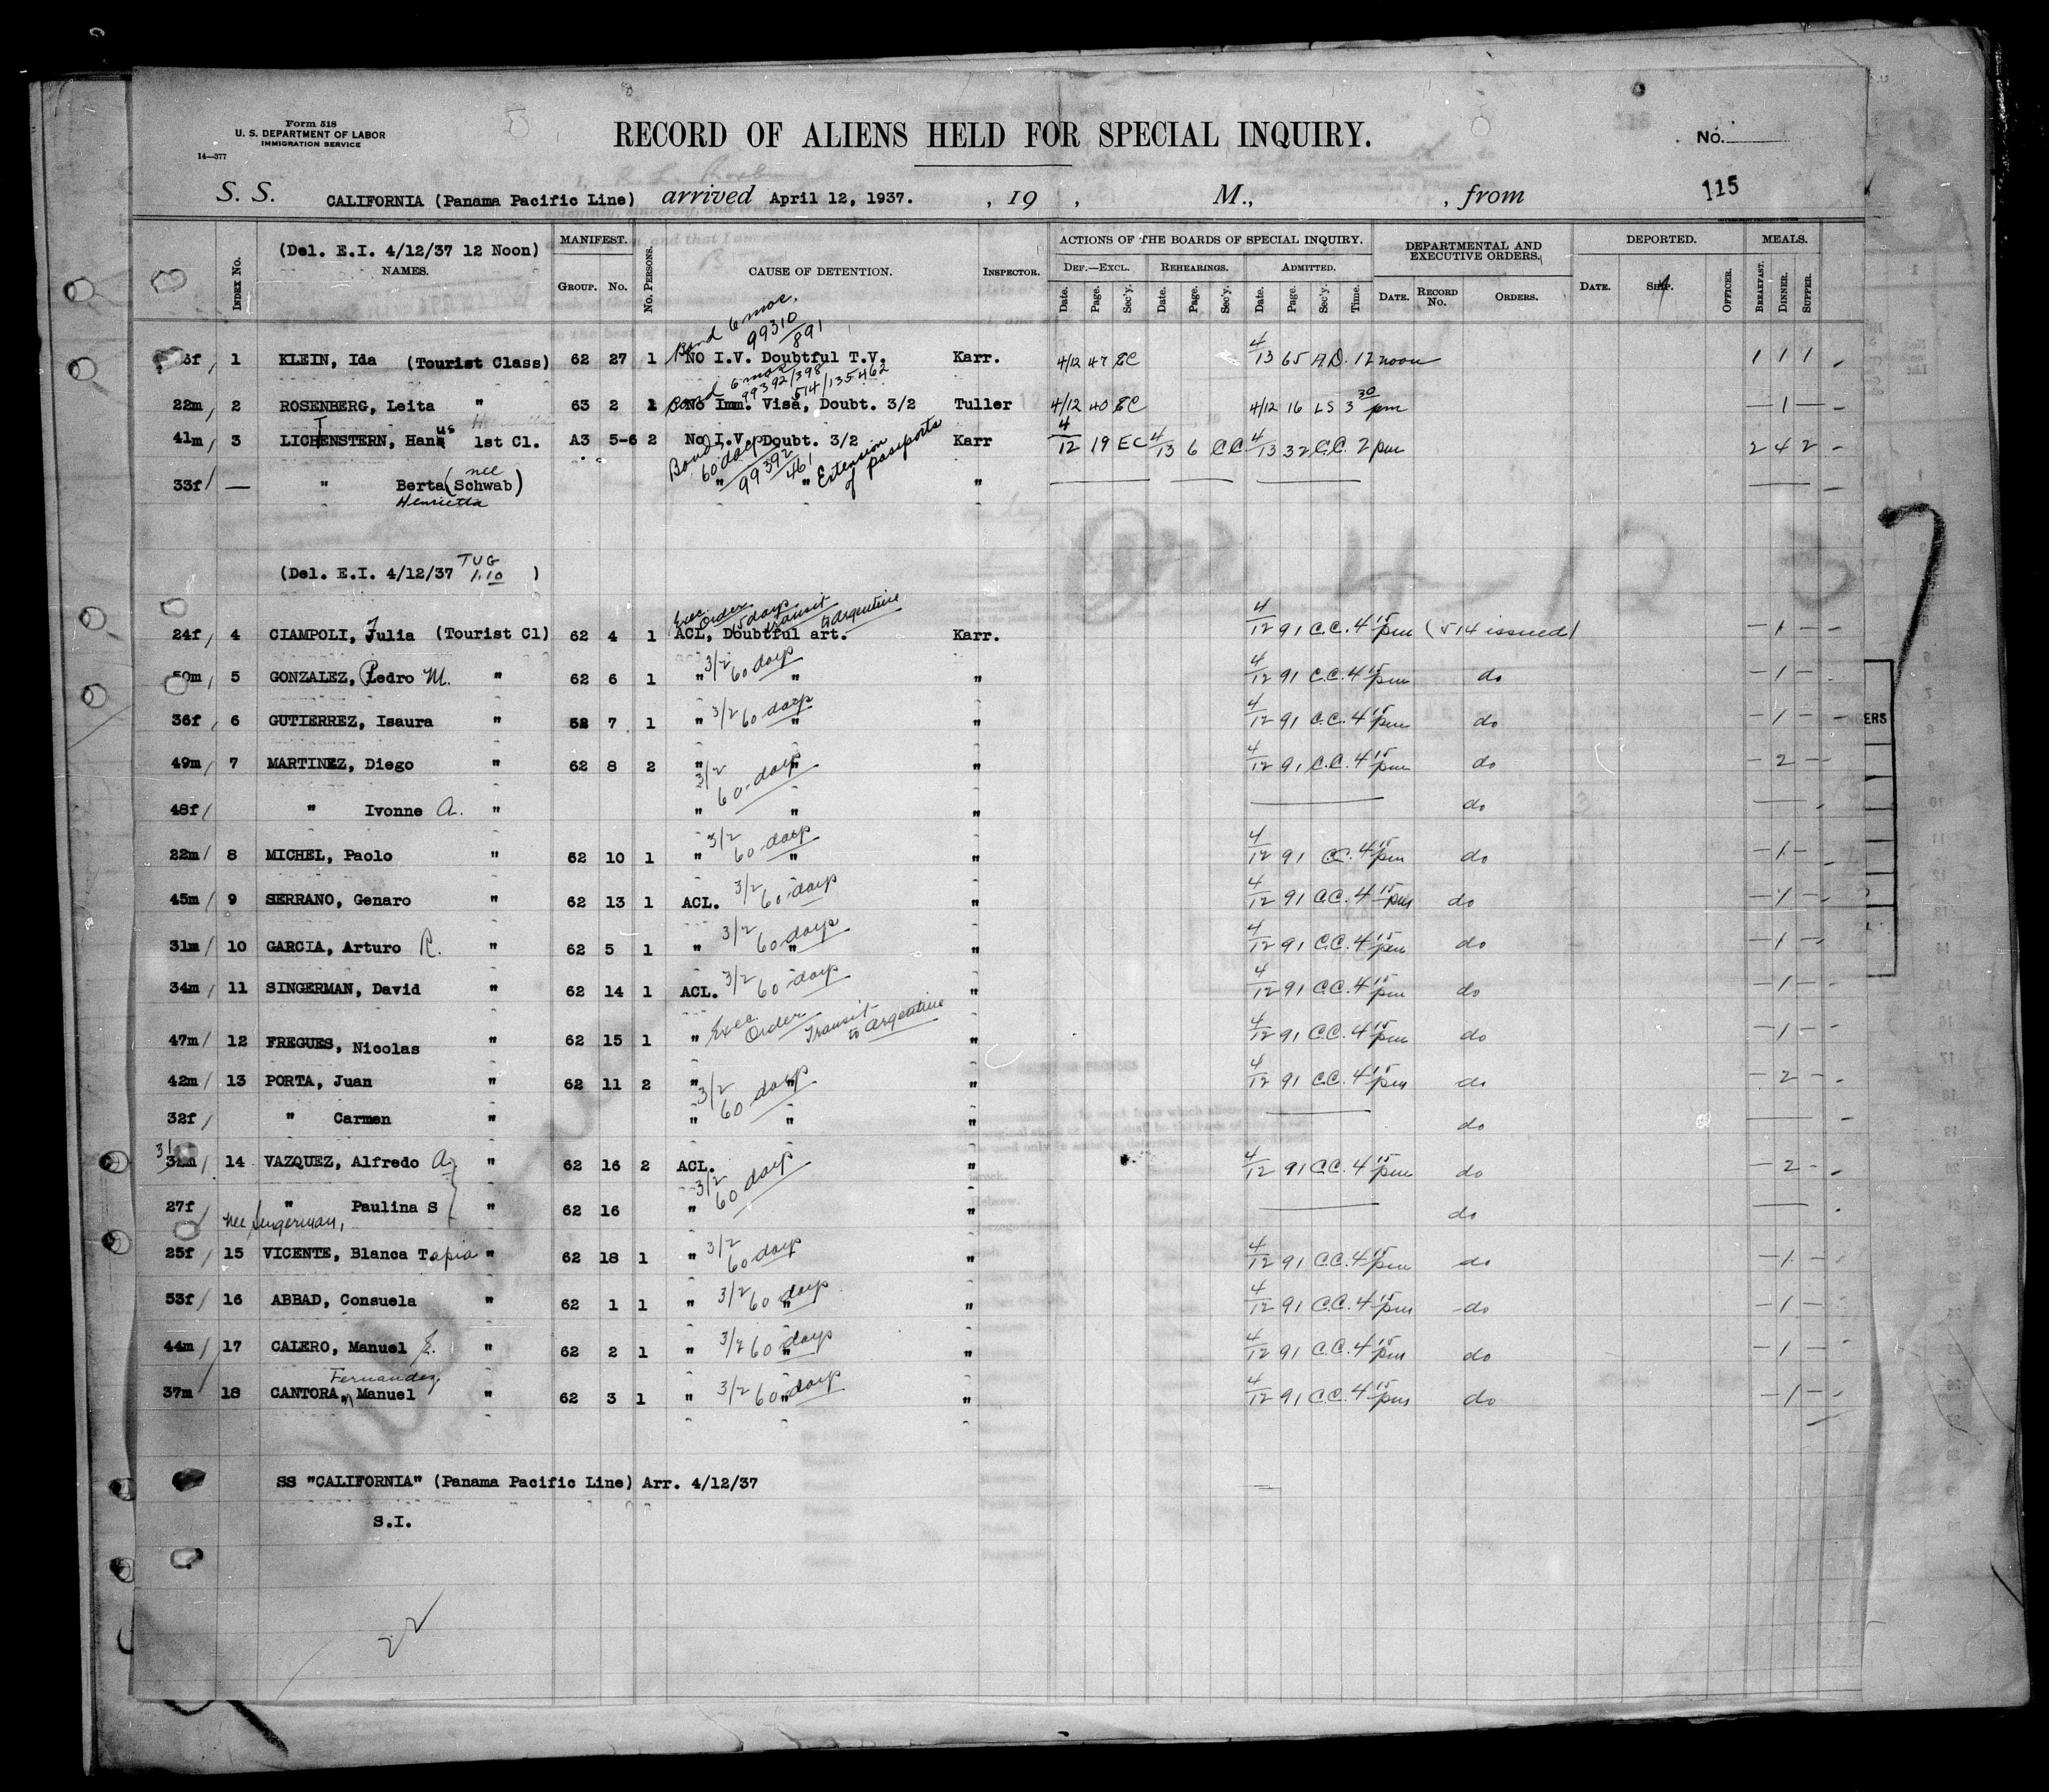 Form 518
U. S. DEPARTMENT OF LABOR
IMMIGRATION SERVICE
14—377
RECORD OF ALIENS HELD FOR SPECIAL INQUIRY.
No.
S. S. CALIFORNIA (Panama Pacific Line) arrived April 12, 1937. , 19 , M., , from 115
(Del. E.I. 4/12/37 12 Noon)
INDEX No. NAMES. MANIFEST. GROUP. No. No. PERSONS. CAUSE OF DETENTION. INSPECTOR. ACTIONS OF THE BOARDS OF SPECIAL INQUIRY. DEPARTMENTAL AND EXECUTIVE ORDERS. DEPORTED. MEALS.
DEF.—EXCL. REHEARINGS. ADMITTED.
Date. Page. Sec'y. Date. Page. Sec'y. Date. Page. Sec'y. Time. DATE. RECORD No. ORDERS. DATE. SHIP. OFFICER. BREAKFAST. DINNER. SUPPER.
Bond 6 mos. 99310/891
1 KLEIN, Ida (Tourist Class) 62 27 1 NO I.V. Doubtful T.V. Karr. 4/12 47 EC 4/13 65 A.D. 12 noon 1 1 1
Bond 6 mos 99392/398 514/135462
22m 2 ROSENBERG, Leita " 63 2 1 No Imm. Visa, Doubt. 3/2 Tuller 4/12 40 EC 4/12 16 LS 3 30 pm — 1 —
41m 3 LICHENSTERN, Hanus 1st Cl. A3 5-6 2 No I.V. Doubt. 3/2 Karr 4/12 19 EC 4/13 6 CC 4/13 32 C.C. 2 pm 2 4 2
Bond 60 days 99392/461 Extension of passports
33f — " Berta (nee Schwab) " " "
Henrietta
(Del. E.I. 4/12/37 TUG 1.10 )
Exec. Order 15 days transit to Argentine
24f 4 CIAMPOLI, Julia (Tourist Cl) 62 4 1 ACL, Doubtful art. Karr. 4/12 91 C.C. 4 15 pm (514 issued) — 1 —
50m 5 GONZALEZ, Pedro M. " 62 6 1 " 3/2 60 days " " 4/12 91 C.C. 4 15 pm do — 1 —
36f 6 GUTIERREZ, Isaura " 52 7 1 " 3/2 60 days " " 4/12 91 C.C. 4 15 pm do — 1 —
49m 7 MARTINEZ, Diego " 62 8 2 " 3/2 60 days " " 4/12 91 C.C. 4 15 pm do — 2 —
48f " Ivonne A. " " " " do
22m 8 MICHEL, Paolo " 62 10 1 " 3/2 60 days " " 4/12 91 CC. 4 15 pm do — 1 —
45m 9 SERRANO, Genaro " 62 13 1 ACL. 3/2 60 days " 4/12 91 C.C. 4 15 pm do — 1 —
31m 10 GARCIA, Arturo R. " 62 5 1 " 3/2 60 days " " 4/12 91 C.C. 4 15 pm do — 1 —
34m 11 SINGERMAN, David " 62 14 1 ACL. 3/2 60 days " 4/12 91 C.C. 4 15 pm do — 1 —
47m 12 FREGUES, Nicolas " 62 15 1 " Exec. Order Transit to Argentine " 4/12 91 C.C. 4 15 pm do — 1 —
42m 13 PORTA, Juan " 62 11 2 " 3/2 60 days " " 4/12 91 C.C. 4 15 pm do — 2 —
32f " Carmen " " " " do
31 14 VAZQUEZ, Alfredo A. " 62 16 2 ACL. 3/2 60 days " 4/12 91 C.C. 4 15 pm do — 2 —
27f " Paulina S " 62 16 " " do
nee Singerman,
25f 15 VICENTE, Blanca Tapia " 62 18 1 " 3/2 60 days " 4/12 91 C.C. 4 15 pm do — 1 —
53f 16 ABBAD, Consuela " 62 1 1 " 3/2 60 days " " 4/12 91 C.C. 4 15 pm do — 1 —
44m 17 CALERO, Manuel E. " 62 2 1 " 3/2 60 days " " 4/12 91 C.C. 4 15 pm do — 1 —
Fernandez
37m 18 CANTORA, Manuel " 62 3 1 " 3/2 60 days " " 4/12 91 C.C. 4 15 pm do — 1 —
SS "CALIFORNIA" (Panama Pacific Line) Arr. 4/12/37
S.I.
22
ERS